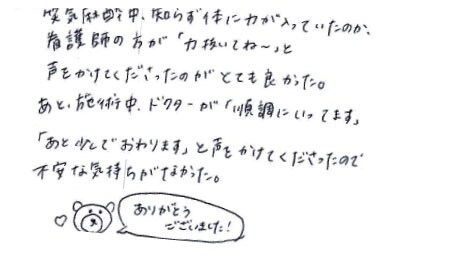 笑気麻酔中、知らず体に力が入っていたのか、
看護師の方が「力抜いてね〜」と
声をかけてくださったのがとても良かった。
あと、施術中、ドクターが「順調にいってます」
「あと少しでおわります」と声をかけてくださったので
不安な気持ちがなかった。
ありがとう
ございました!